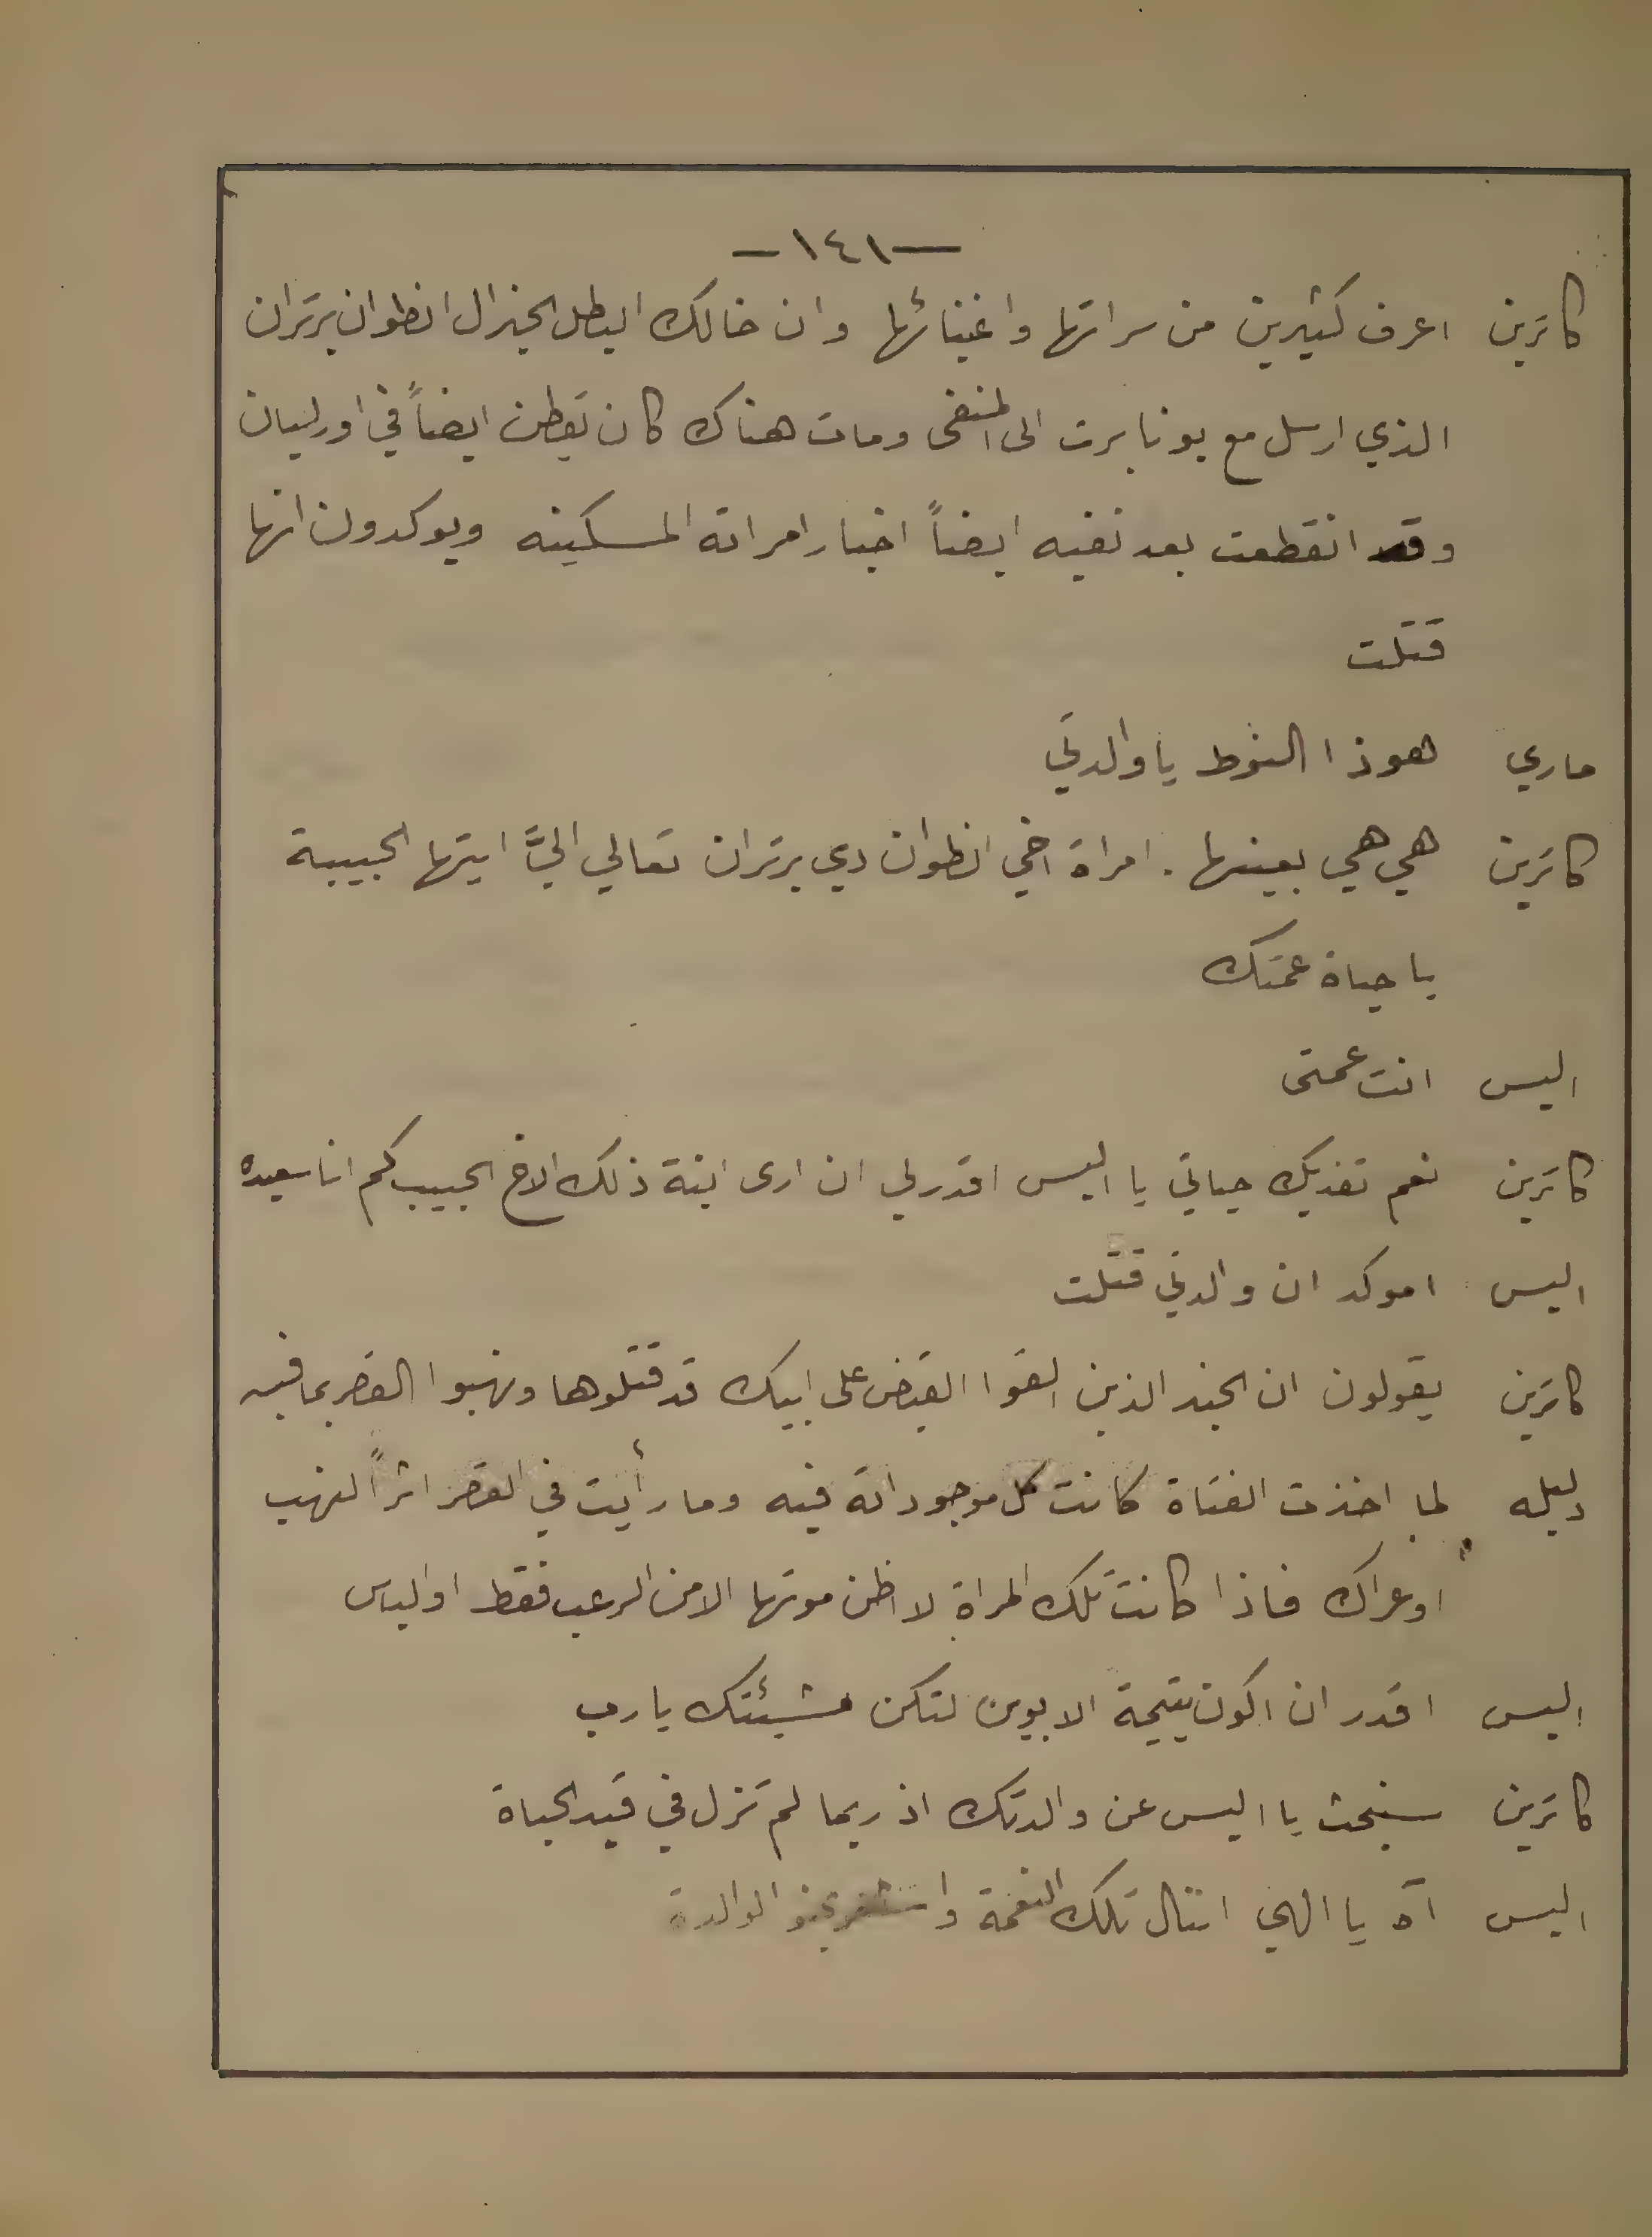 — ١٤١ —
كاترين اعرف كثيرين من سراتها واغنيائها وان خالك البطل الجنرال انطوان برتران
الذي ارسل مع بونابرت الى المنفى ومات هناك كان يقطن ايضاً في اورليان
وقد انقطعت بعد نفيه ايضاً اخبار امراته المسكينه ويوكدون انها
قتلت
ماري هوذا النوط يا والدتي
كاترين هي هي بعينها . امراة اخي انطوان دي برتران تعالي اليَّ ايتها الحبيبة
يا حياة عمتك
اليس انت عمتى
كاترين نعم تفديك حياتي يا اليس اقدر لي ان ارى ابنة ذلك الاخ الحبيب كم انا سعيده
اليس اموكد ان والدتي قتلت
كاترين يقولون ان الجند الذين القوا القبض على ابيك قد قتلوها ونهبوا القصر بما فيه
دليله لما اخذت الفتاة كانت كل موجوداته فيه وما رأيت في القصر اثراً لنهب
او عراك فاذا كانت تلك المراة لا اظن موتها الا من الرعب فقط او الياس
اليس اقدر ان اكون يتيمة الابوين لتكن مشيئتك يا رب
كاترين سنبحث يا اليس عن والدتك اذ ربما لم تزل في قيد الحياة
اليس آه يا الهي اننال تلك النعمة الوالدة